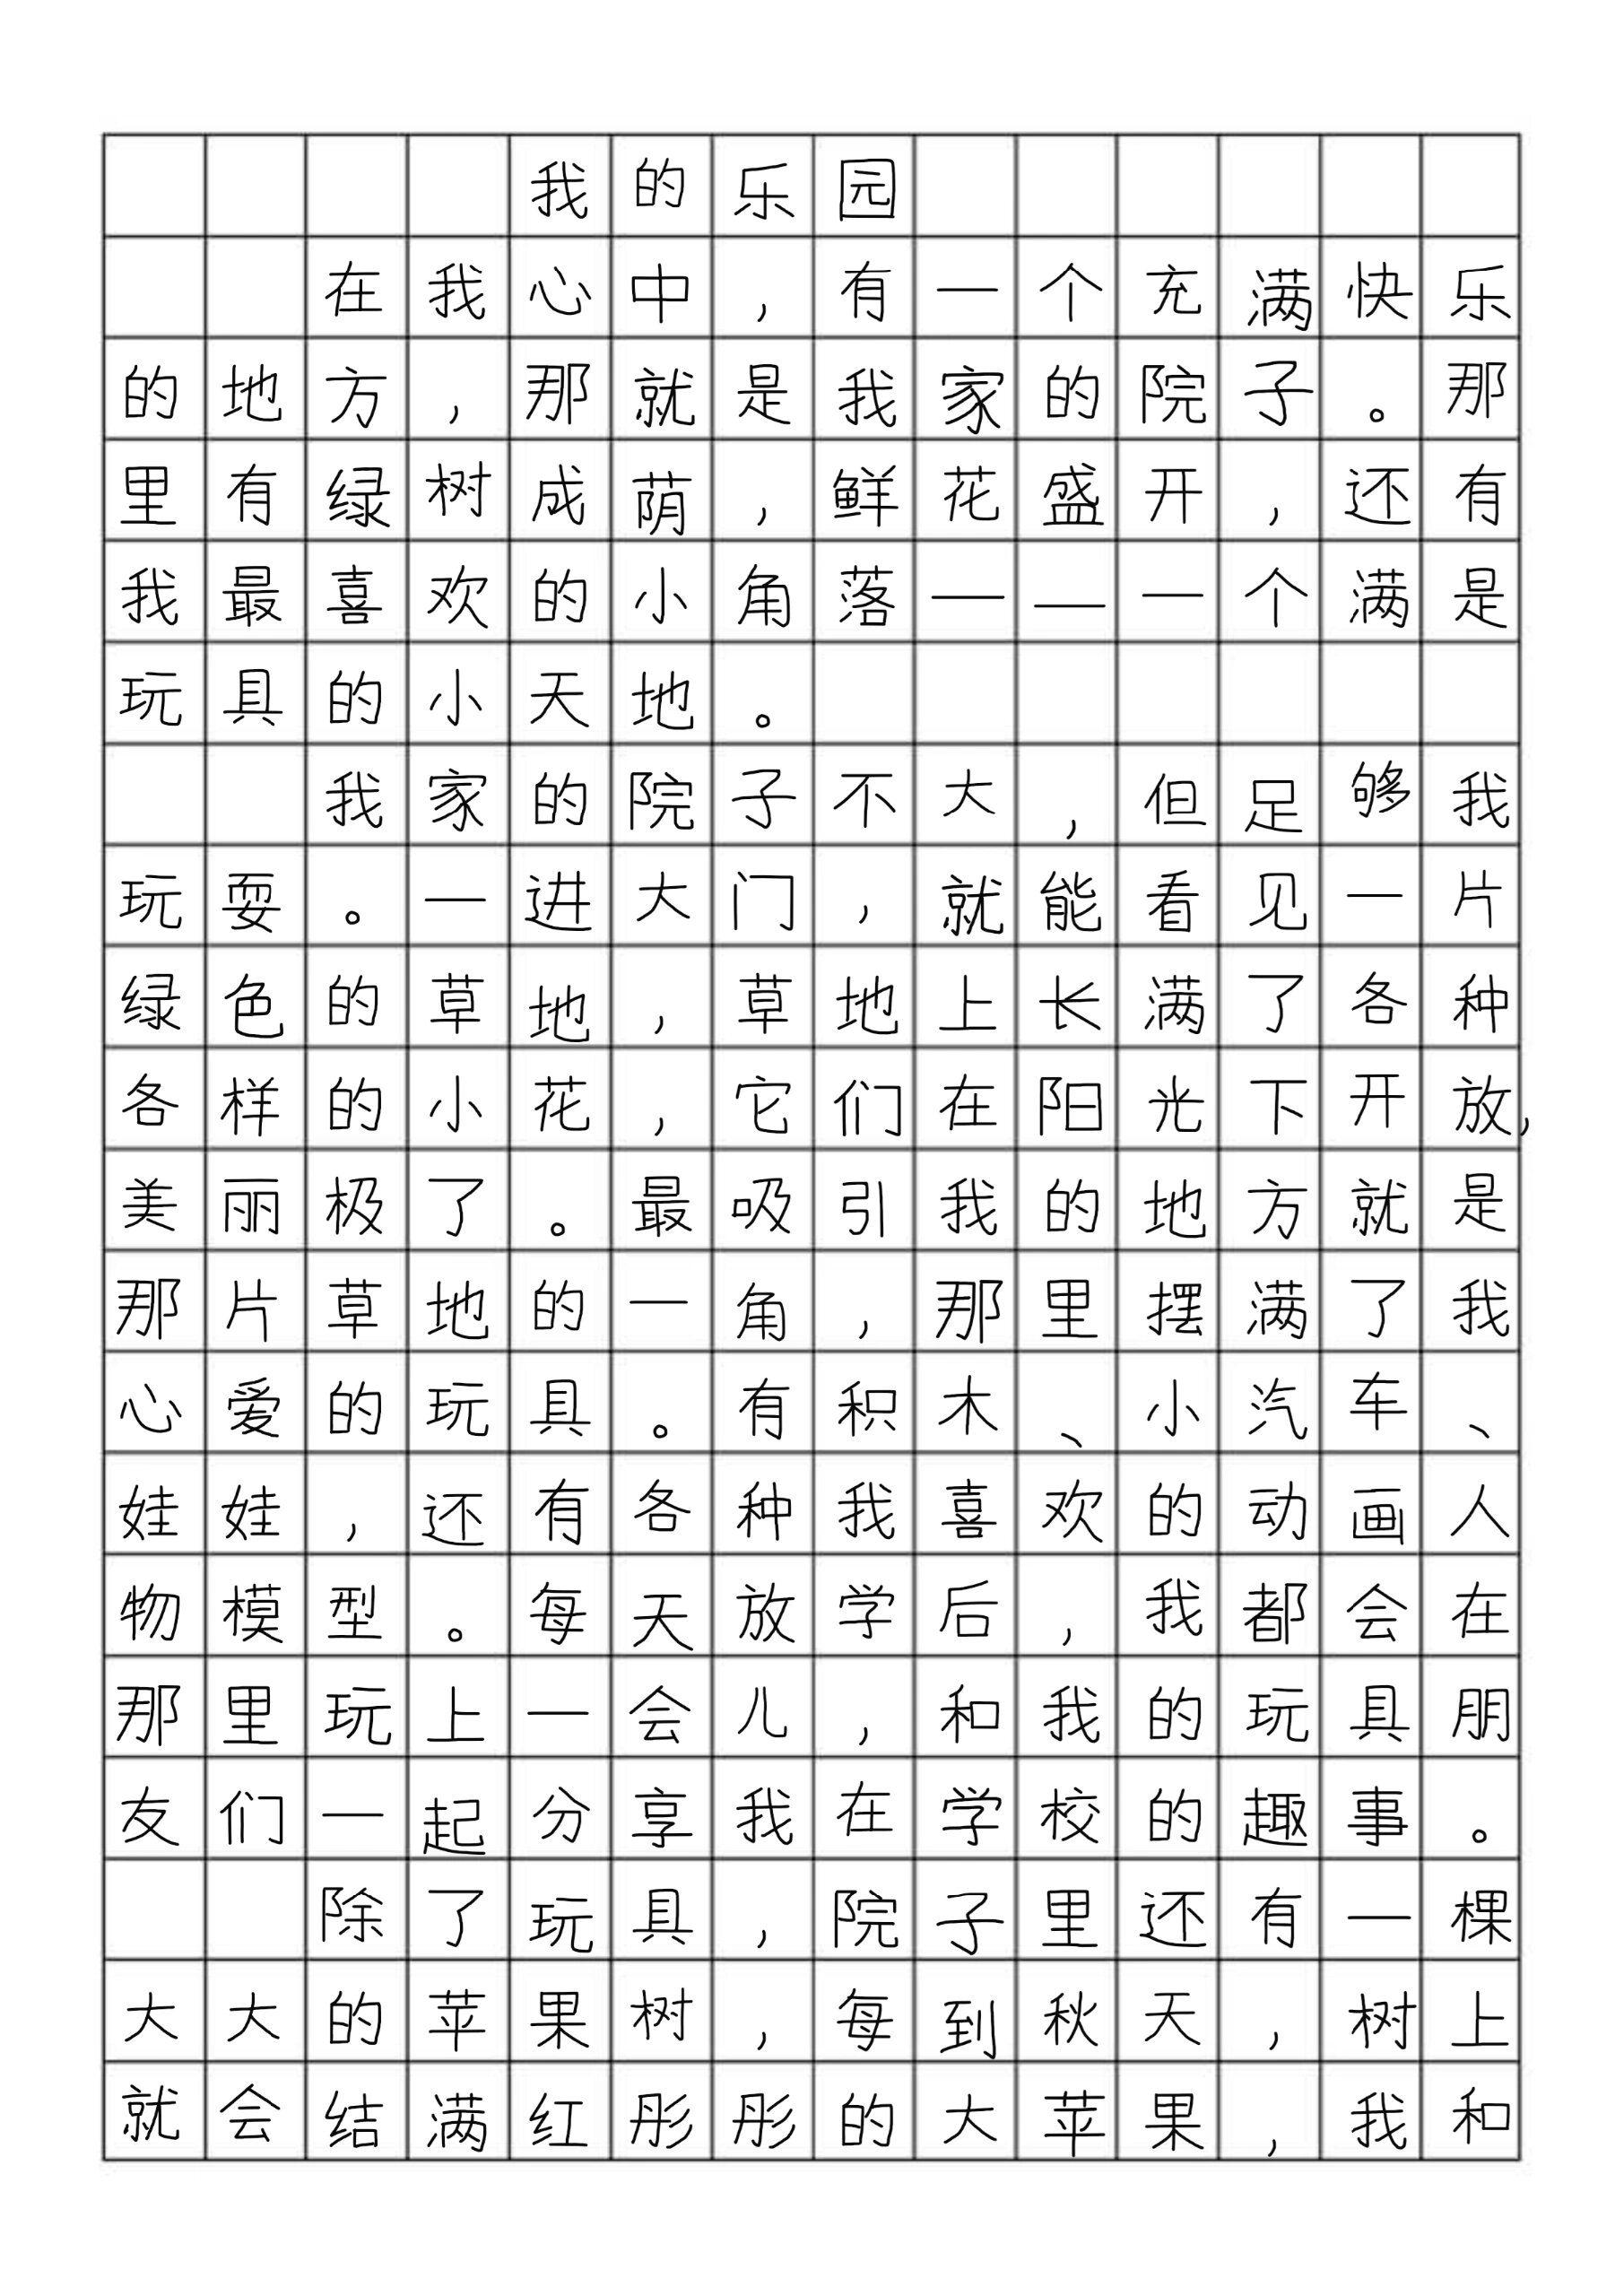 我的乐园
在我心中，有一个充满快乐
的地方，那就是我家的院子。那
里有绿树成荫，鲜花盛开，还有
我最喜欢的小角落——一个满是
玩具的小天地。
我家的院子不大，但足够我
玩耍。一进大门，就能看见一片
绿色的草地，草地上长满了各种
各样的小花，它们在阳光下开放，
美丽极了。最吸引我的地方就是
那片草地的一角，那里摆满了我
心爱的玩具。有积木、小汽车、
娃娃，还有各种我喜欢的动画人
物模型。每天放学后，我都会在
那里玩上一会儿，和我的玩具朋
友们一起分享我在学校的趣事。
除了玩具，院子里还有一棵
大大的苹果树，每到秋天，树上
就会结满红彤彤的大苹果，我和